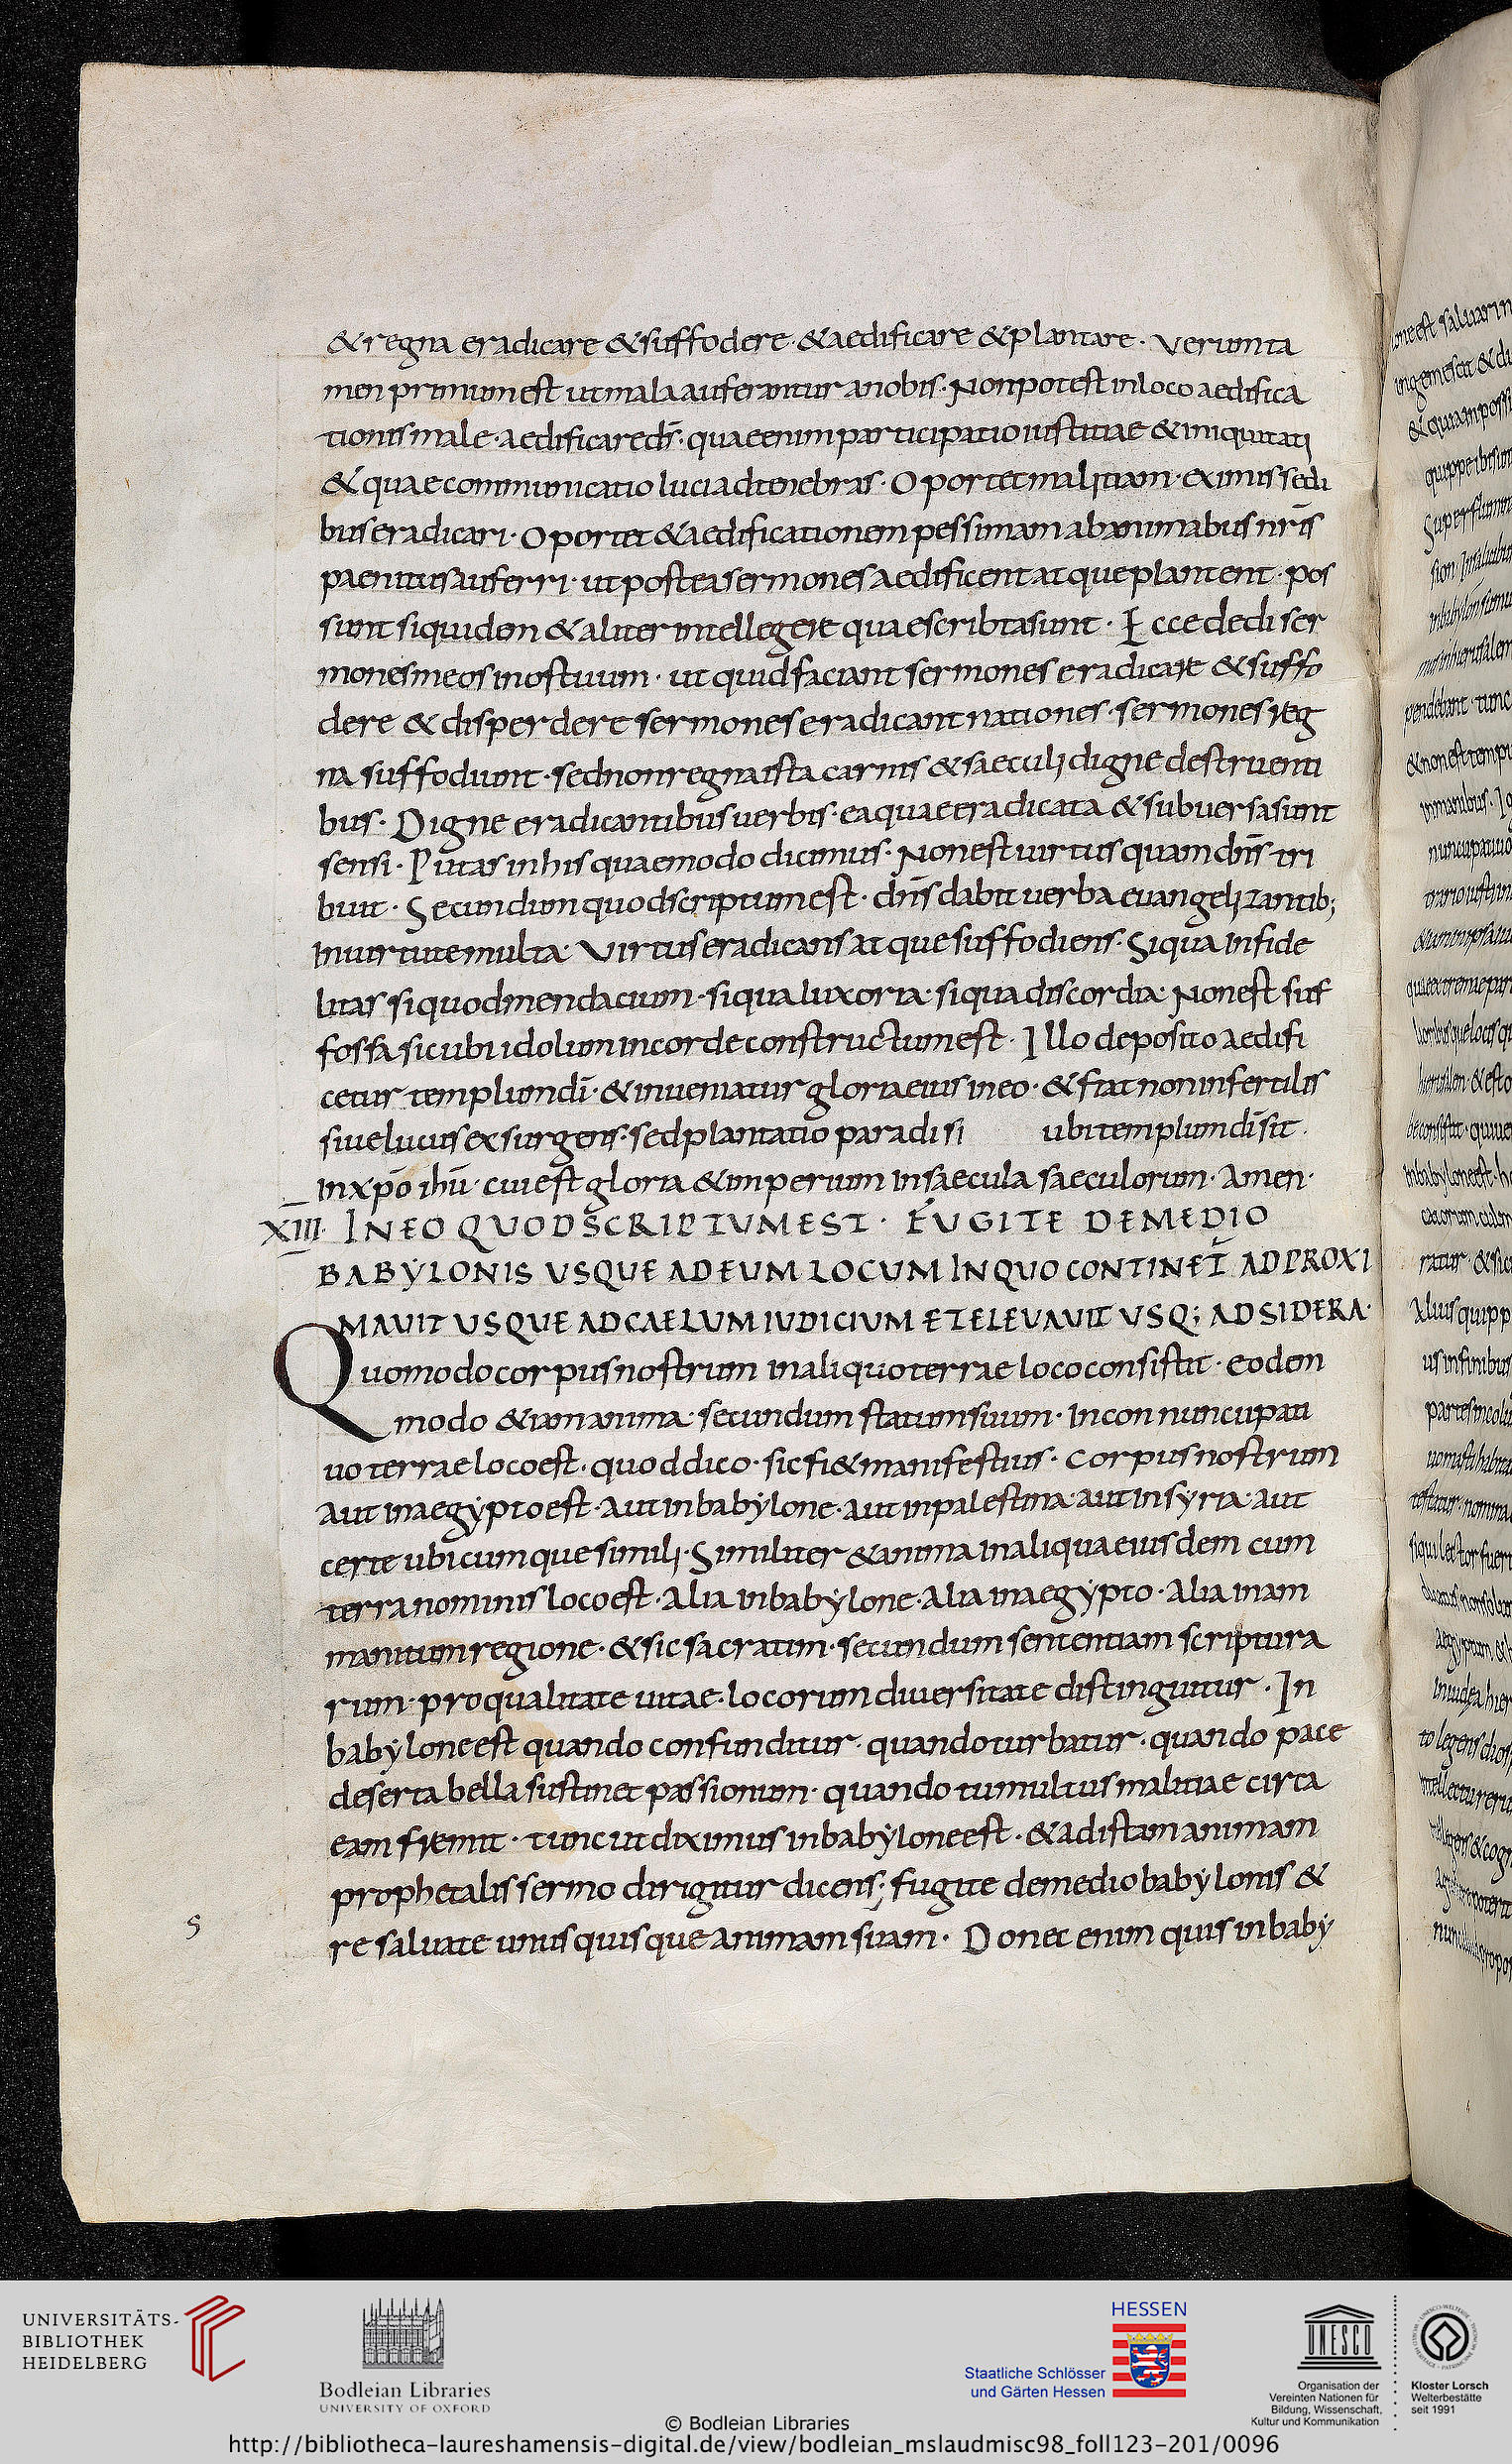 & regna eradicare & suffodere · & aedificare & plantare · Verumta
men primum est ut mala auferantur a nobis · Non potest in loco aedifica
tionis male · aedificare ds̄ · quae enim participatio iustitiae & iniquitati
& quae communicatio luci ad tenebras · Oportet malitiam · ex imis sedi
bus eradicari · Oportet & aedificationem pessimam ab animabus nr̄is
paenitus auferri · ut postea sermones aedificent atque plantent · pos
sunt siquidem & aliter intellegere quae scribta sunt · Ecce dedi ser
mones meos in os tuum · ut quid faciant sermones eradicare & suffo
dere & disperdere sermones eradicant nationes · sermones reg
na suffodiunt · sed non regna ista carnis & saeculi digne destruenti
bus · Digne eradicantibus uerbis · ea quae eradicata & subuersa sunt
sensi · Putas in his quae modo dicimus · Non est uirtus quam dn̄s tri
buit · Secundum quod scriptum est · dn̄s dabit uerba euangelizantib;
in uirtute multa · Virtus eradicans atque suffodiens · Si qua infide
litas si quod mendacium · si qua luxoria · si qua discordia · Non est suf
fossa sicubi idolum in corde constructum est · Illo deposito aedifi
cetur templum dī · & inueniatur gloria eius in eo · & fiat non infertilis
siue lucus exsurgens · sed plantatio paradisi ubi templum dī sit ·
in xp̄o ihū · cui est gloria & imperium in saecula saeculorum · Amen ·
XIII · IN EO QUOD SCRIPTUM EST · FUGITE DE MEDIO
BABYLONIS USQUE AD EUM LOCUM IN QUO CONTINET̄ ADPROXI
MAUIT USQUE AD CAELUM IUDICIUM ET ELEUAUIT USQ; AD SIDERA ·
Quomodo corpus nostrum in aliquo terrae loco consistit · eodem
modo & iam anima · secundum statum suum · in con nuncupati
uo terrae loco est · quod dico · sic fi& manifestius · Corpus nostrum
aut in aegypto est · aut in babylone · aut in palestina · aut in syria · aut
certe ubicumque simili · Similiter & anima in aliqua eiusdem cum
terra nominis loco est · Alia in babylone · Alia in aegypto · Alia in am
manitum regione · & sic sacratim · secundum sententiam scriptura
rum · pro qualitate uitae · locorum diuersitate distinguitur · In
babylone est quando confunditur · quando turbatur · quando pace
deserta bella sustinet passionum · quando tumultus malitiae circa
eam fremit · tunc ut diximus in babylone est · & ad istam animam
prophetalis sermo dirigitur dicens; fugite de medio babylonis &
re saluate unusquisque animam suam · Donec enim quis in baby
S
UNIVERSITÄTS-
BIBLIOTHEK
HEIDELBERG
Bodleian Libraries
UNIVERSITY OF OXFORD
HESSEN
Staatliche Schlösser
und Gärten Hessen
UNESCO
Organisation der
Vereinten Nationen für
Bildung, Wissenschaft,
Kultur und Kommunikation
Kloster Lorsch
Welterbestätte
seit 1991
© Bodleian Libraries
http://bibliotheca-laureshamensis-digital.de/view/bodleian_mslaudmisc98_foll123-201/0096